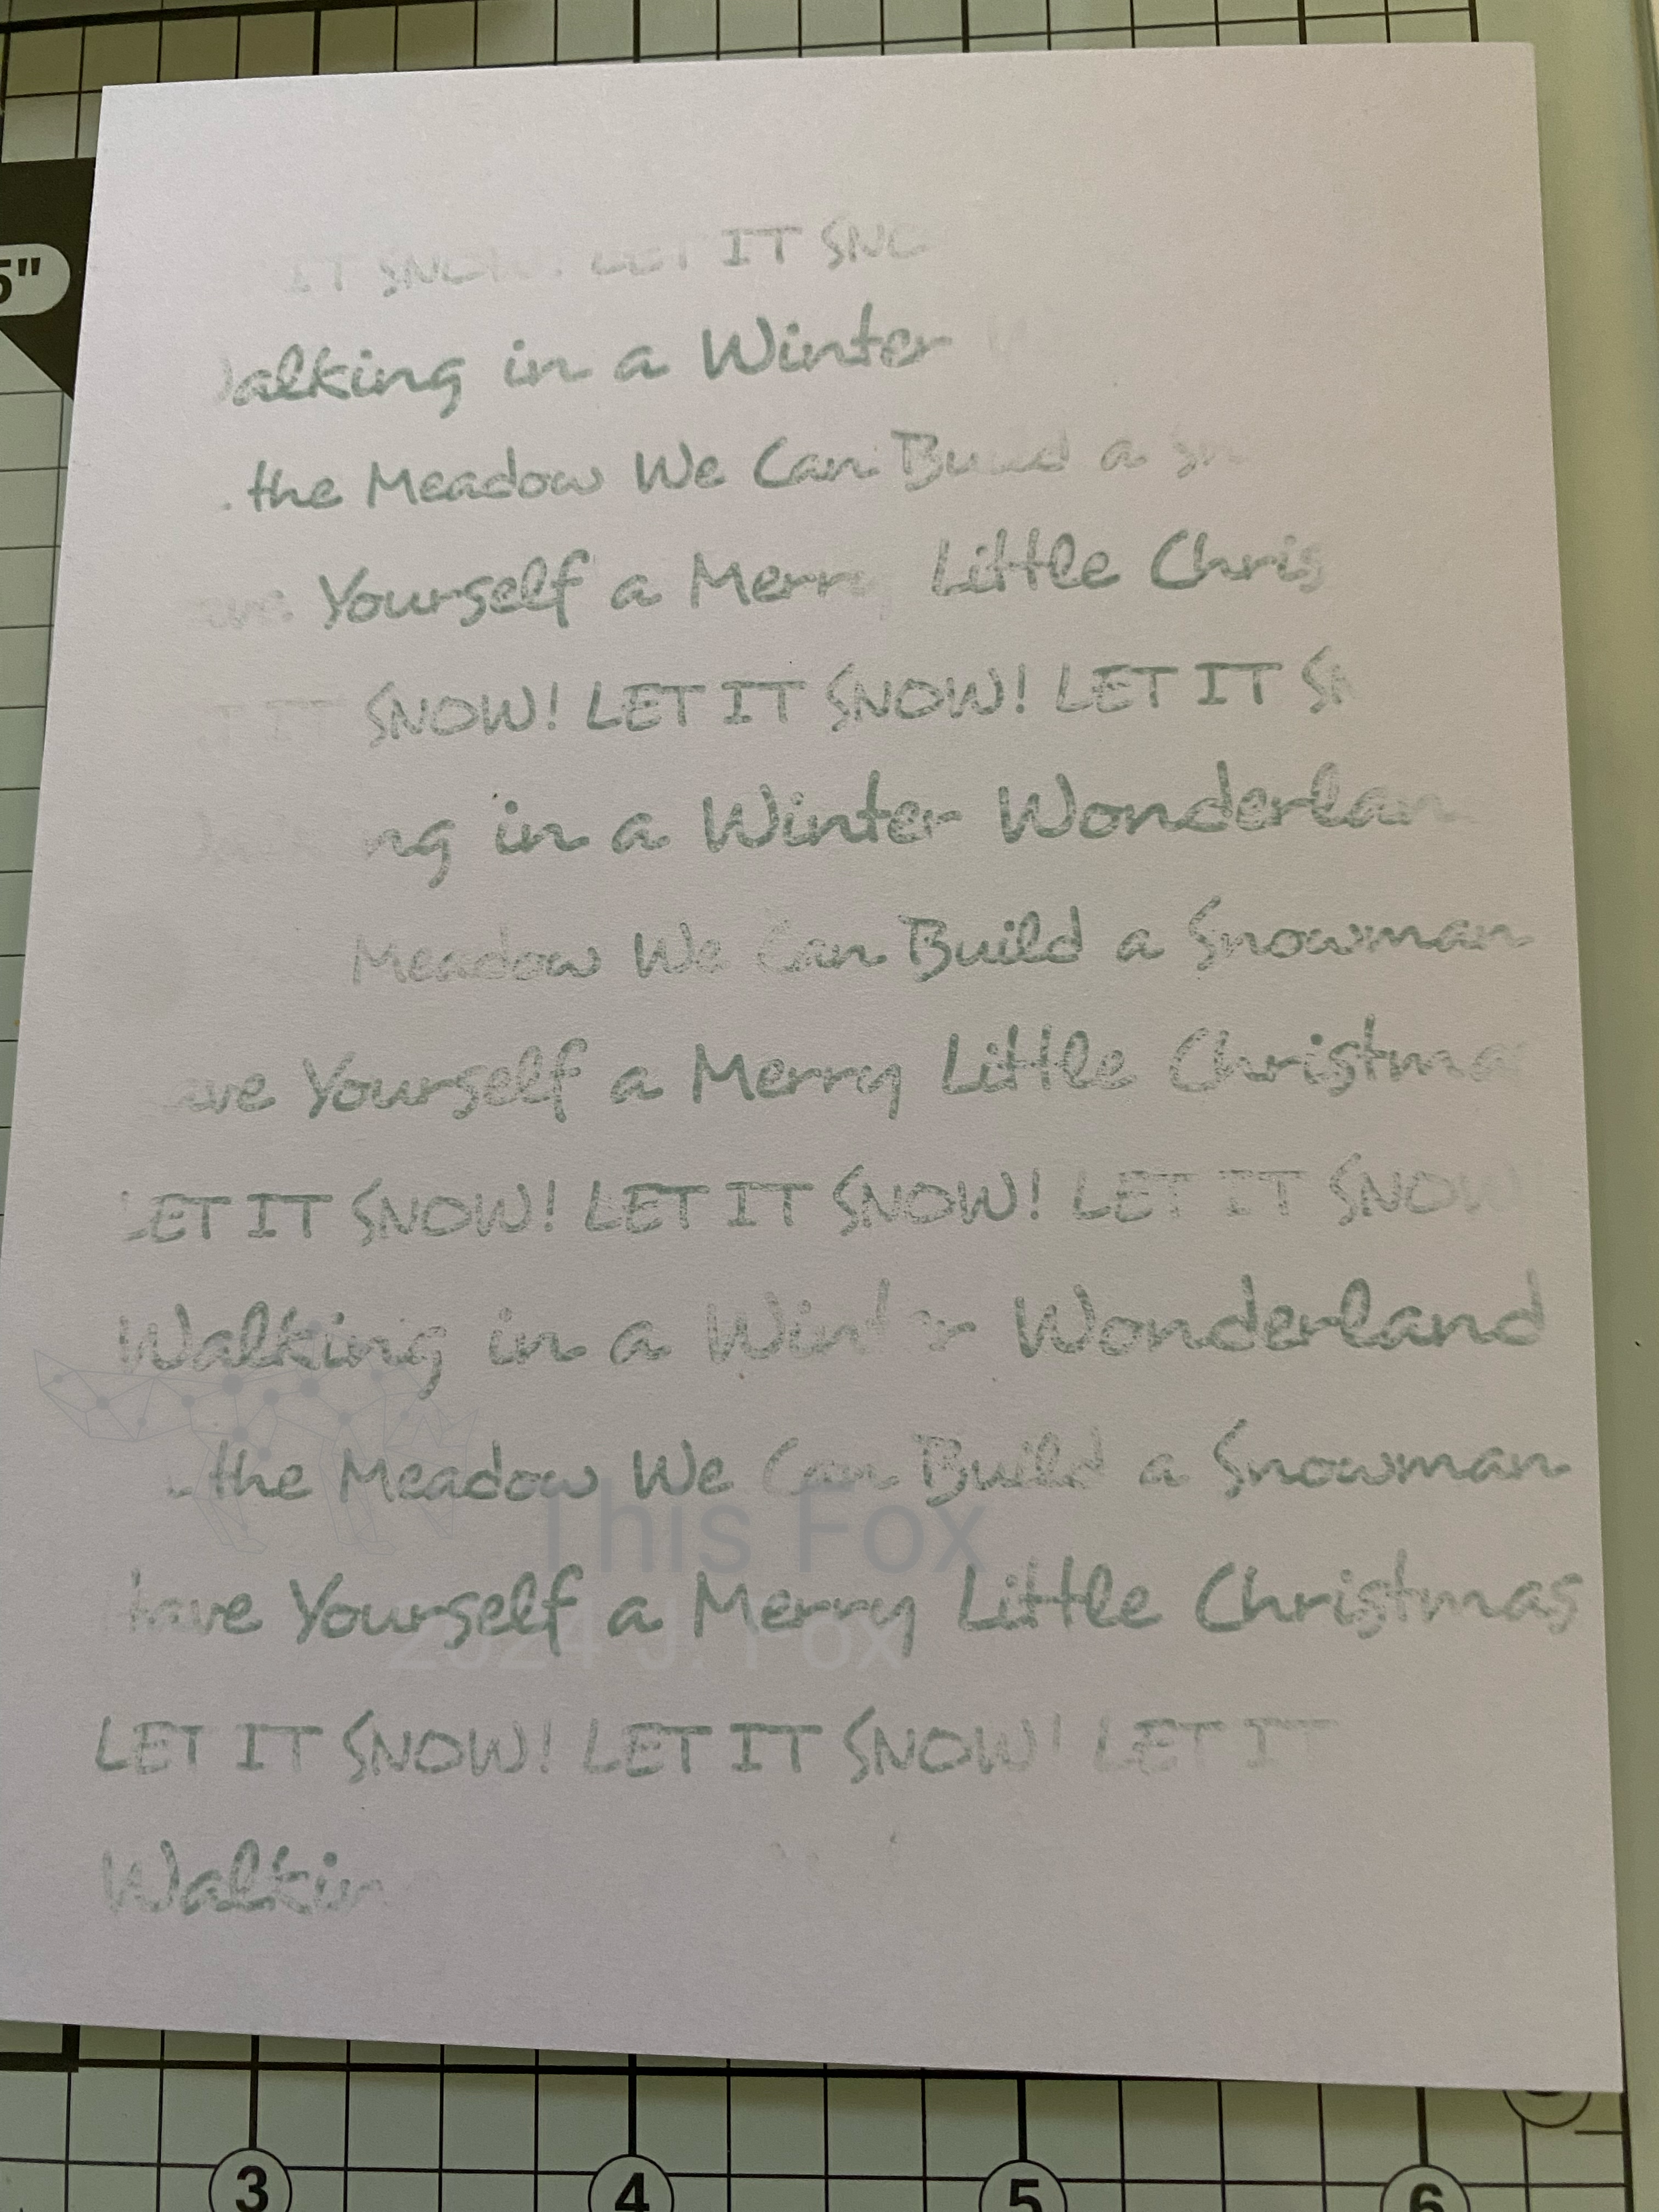 5"
IT SNOW! LET IT SNO
alking in a Winter
the Meadow We Can Build a Sn
ave Yourself a Merry Little Chris
T IT SNOW! LET IT SNOW! LET IT SN
ng in a Winter Wonderlan
Meadow We Can Build a Snowman
ave Yourself a Merry Little Christma
LET IT SNOW! LET IT SNOW! LET IT SNOW
Walking in a Winter Wonderland
the Meadow We Can Build a Snowman
This Fox
Have Yourself a Merry Little Christmas
2024 J. Fox
LET IT SNOW! LET IT SNOW! LET IT
Walkin
3 4 5 6